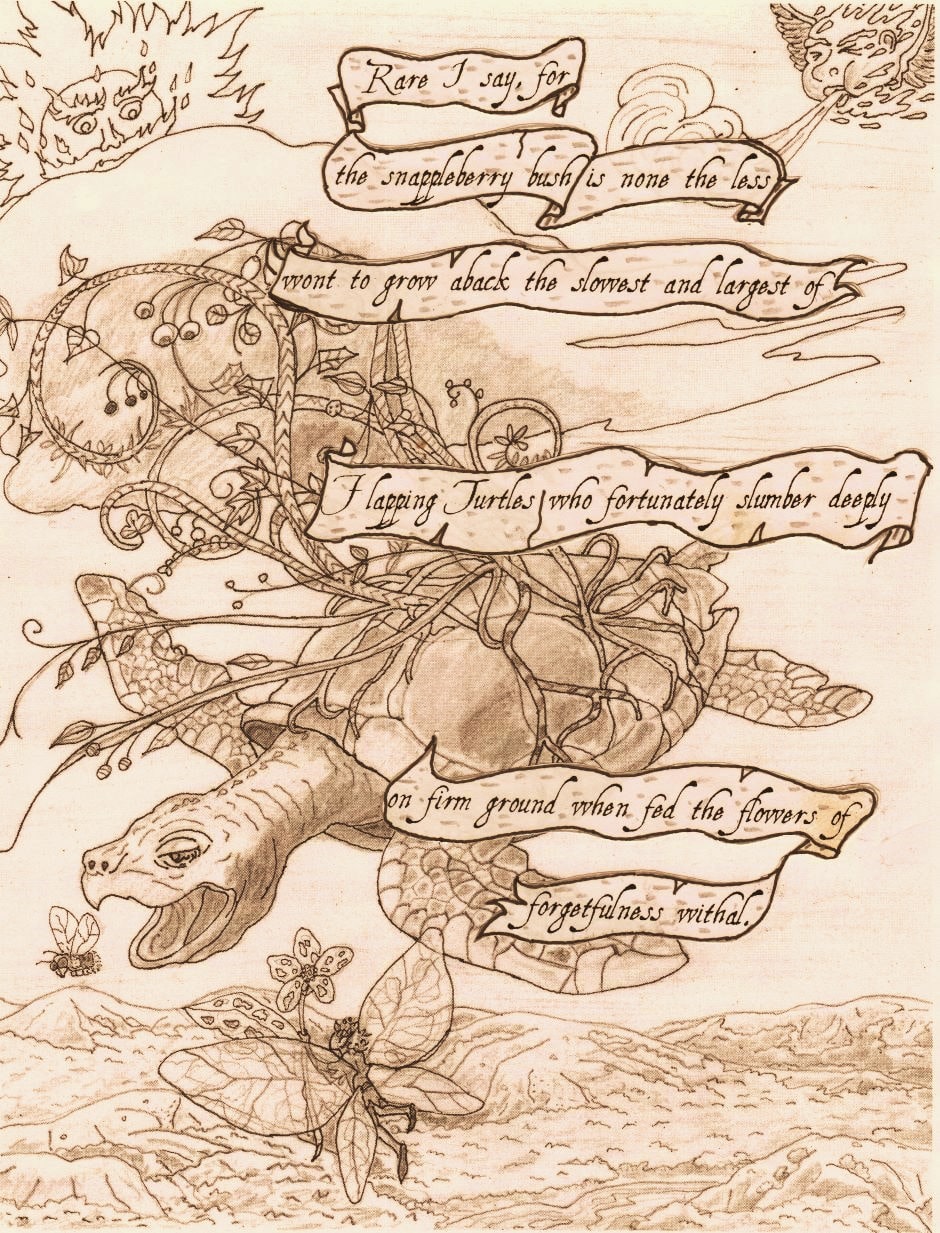 Rare I say, for
the snappleberry bush is none the less
wont to grow aback the slowest and largest of
Flapping Turtles who fortunately slumber deeply
on firm ground when fed the flowers of
forgetfulness withal.